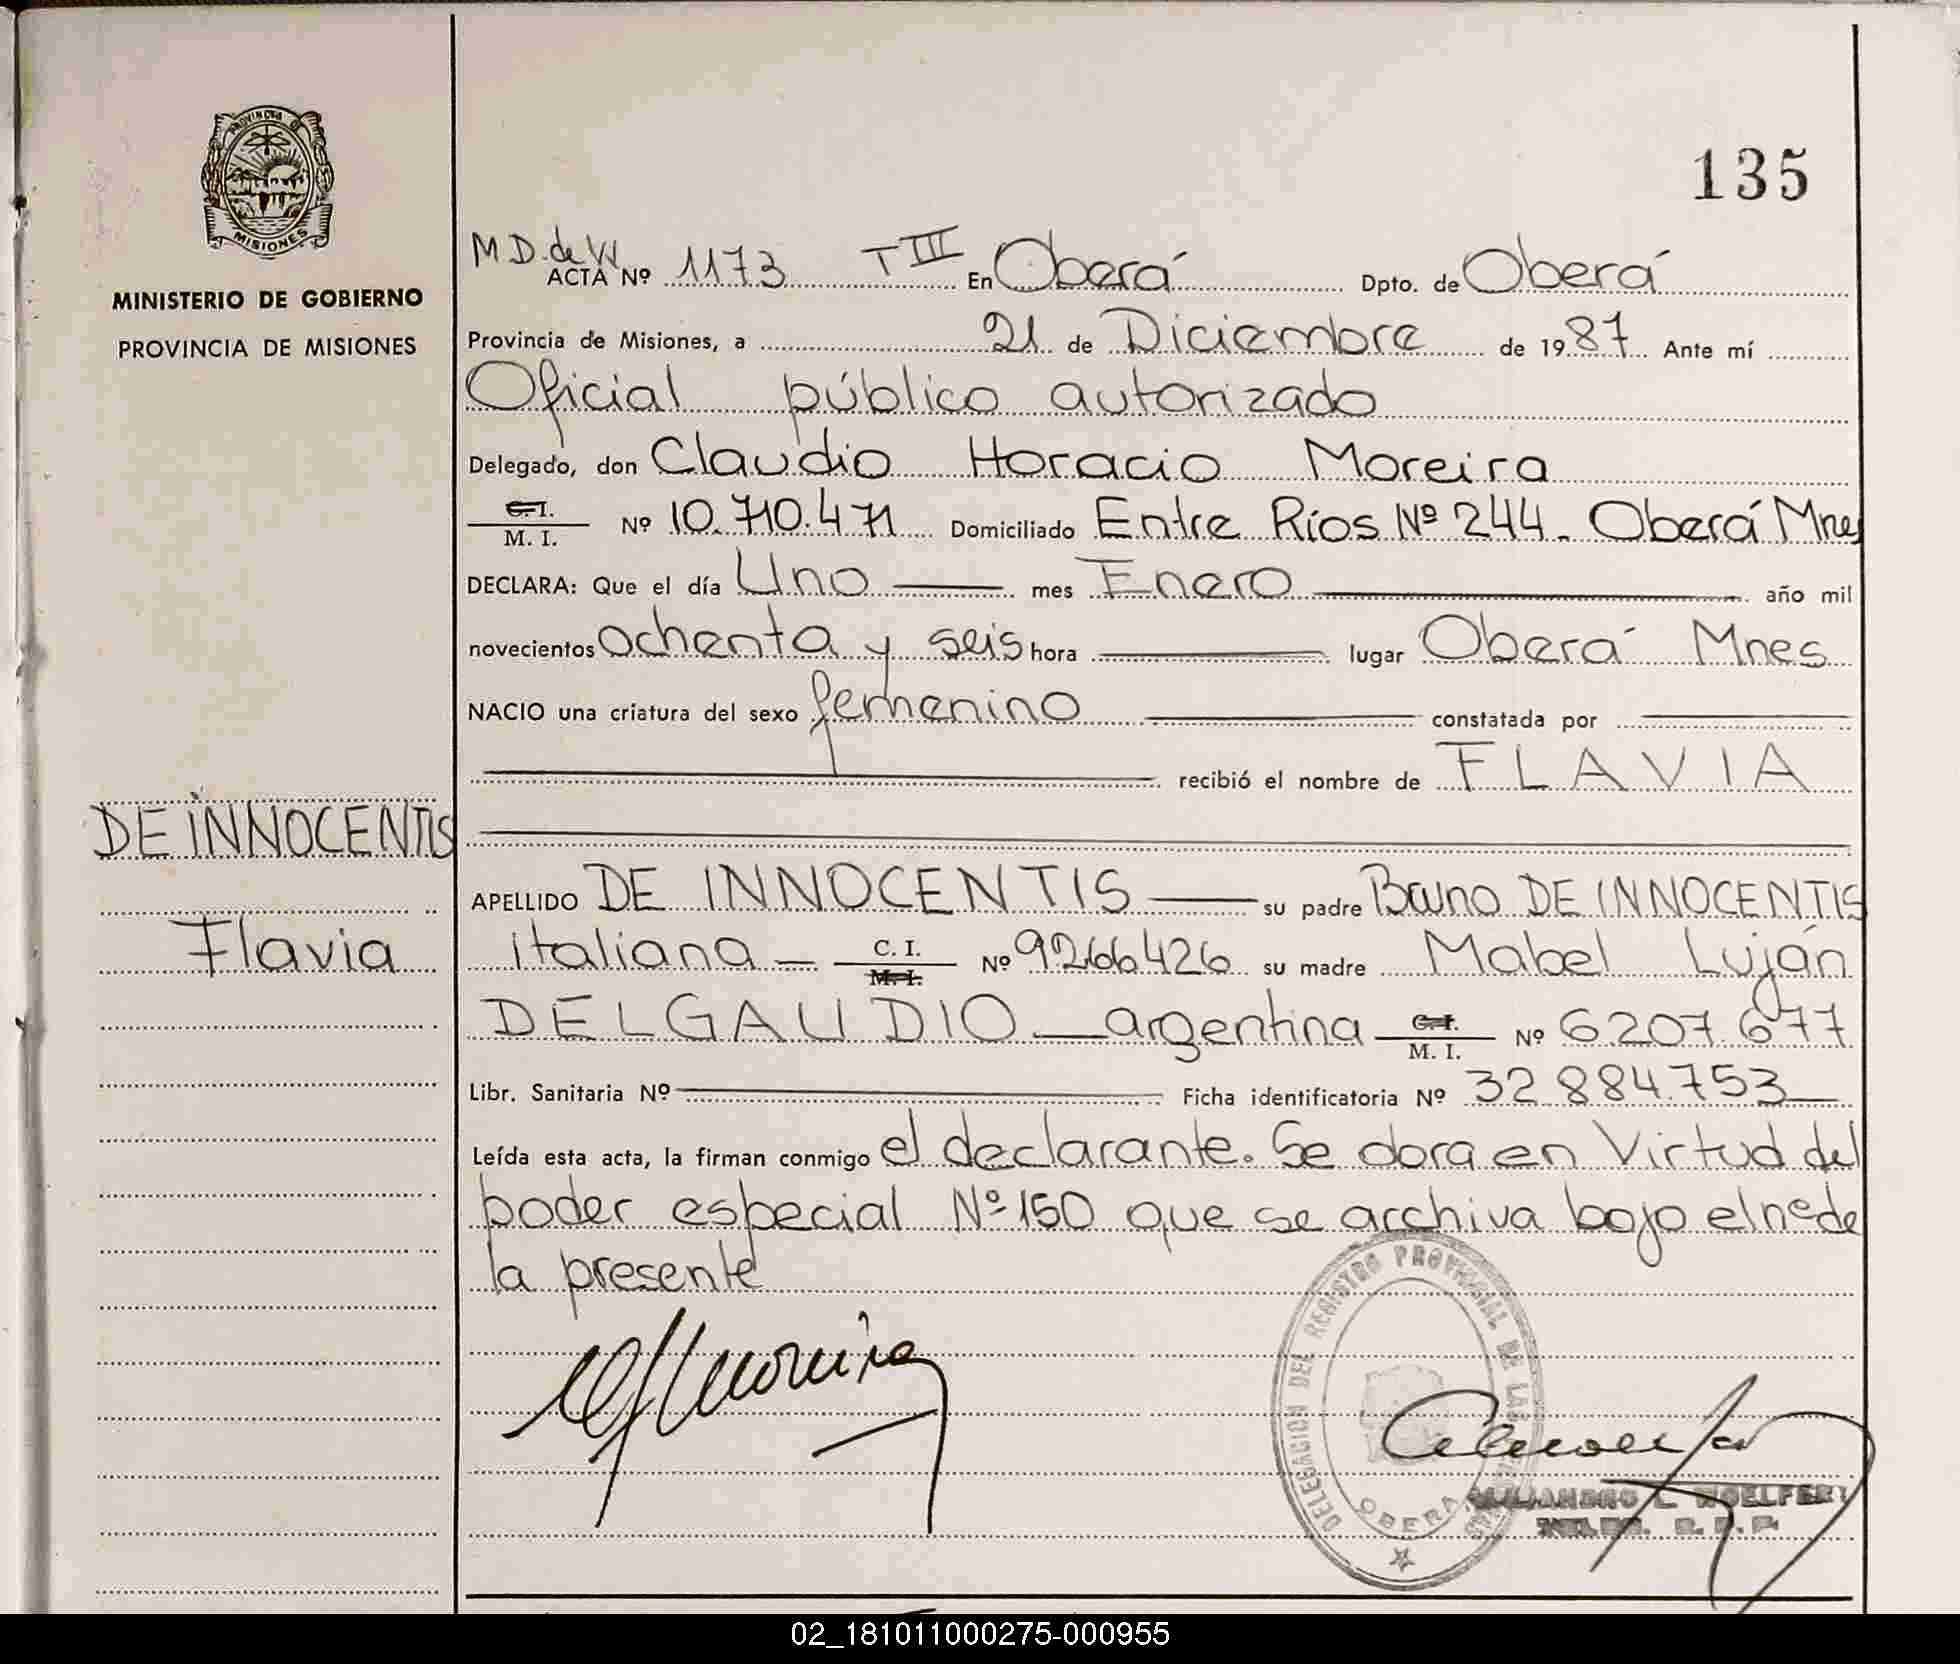 135
PROVINCIA DE
MISIONES
MINISTERIO DE GOBIERNO
PROVINCIA DE MISIONES
M D. de W
ACTA Nº 1173 T III En Oberá Dpto. de Oberá
Provincia de Misiones, a 21 de Diciembre de 1987 Ante mí
Oficial público autorizado
Delegado, don Claudio Horacio Moreira
C. I. / M. I. Nº 10.710.471 Domiciliado Entre Ríos Nº 244. Oberá Mnes
DECLARA: Que el día Uno mes Enero año mil
novecientos ochenta y seis hora lugar Oberá Mnes
NACIO una criatura del sexo femenino constatada por
recibió el nombre de FLAVIA
DE INNOCENTIS
Flavia
APELLIDO DE INNOCENTIS su padre Bruno DE INNOCENTIS
italiana C. I. / M. I. Nº 9266426 su madre Mabel Luján
DELGAUDIO argentina C. I. / M. I. Nº 6207.677
Libr. Sanitaria Nº Ficha identificatoria Nº 32.884.753
Leída esta acta, la firman conmigo el declarante. Se dora en Virtud del
poder especial Nº 150 que se archiva bajo el nº de
la presente
DELEGACION DEL REGISTRO PROVINCIAL DE LAS
OBERA
L. WOELFERT
02_181011000275-000955